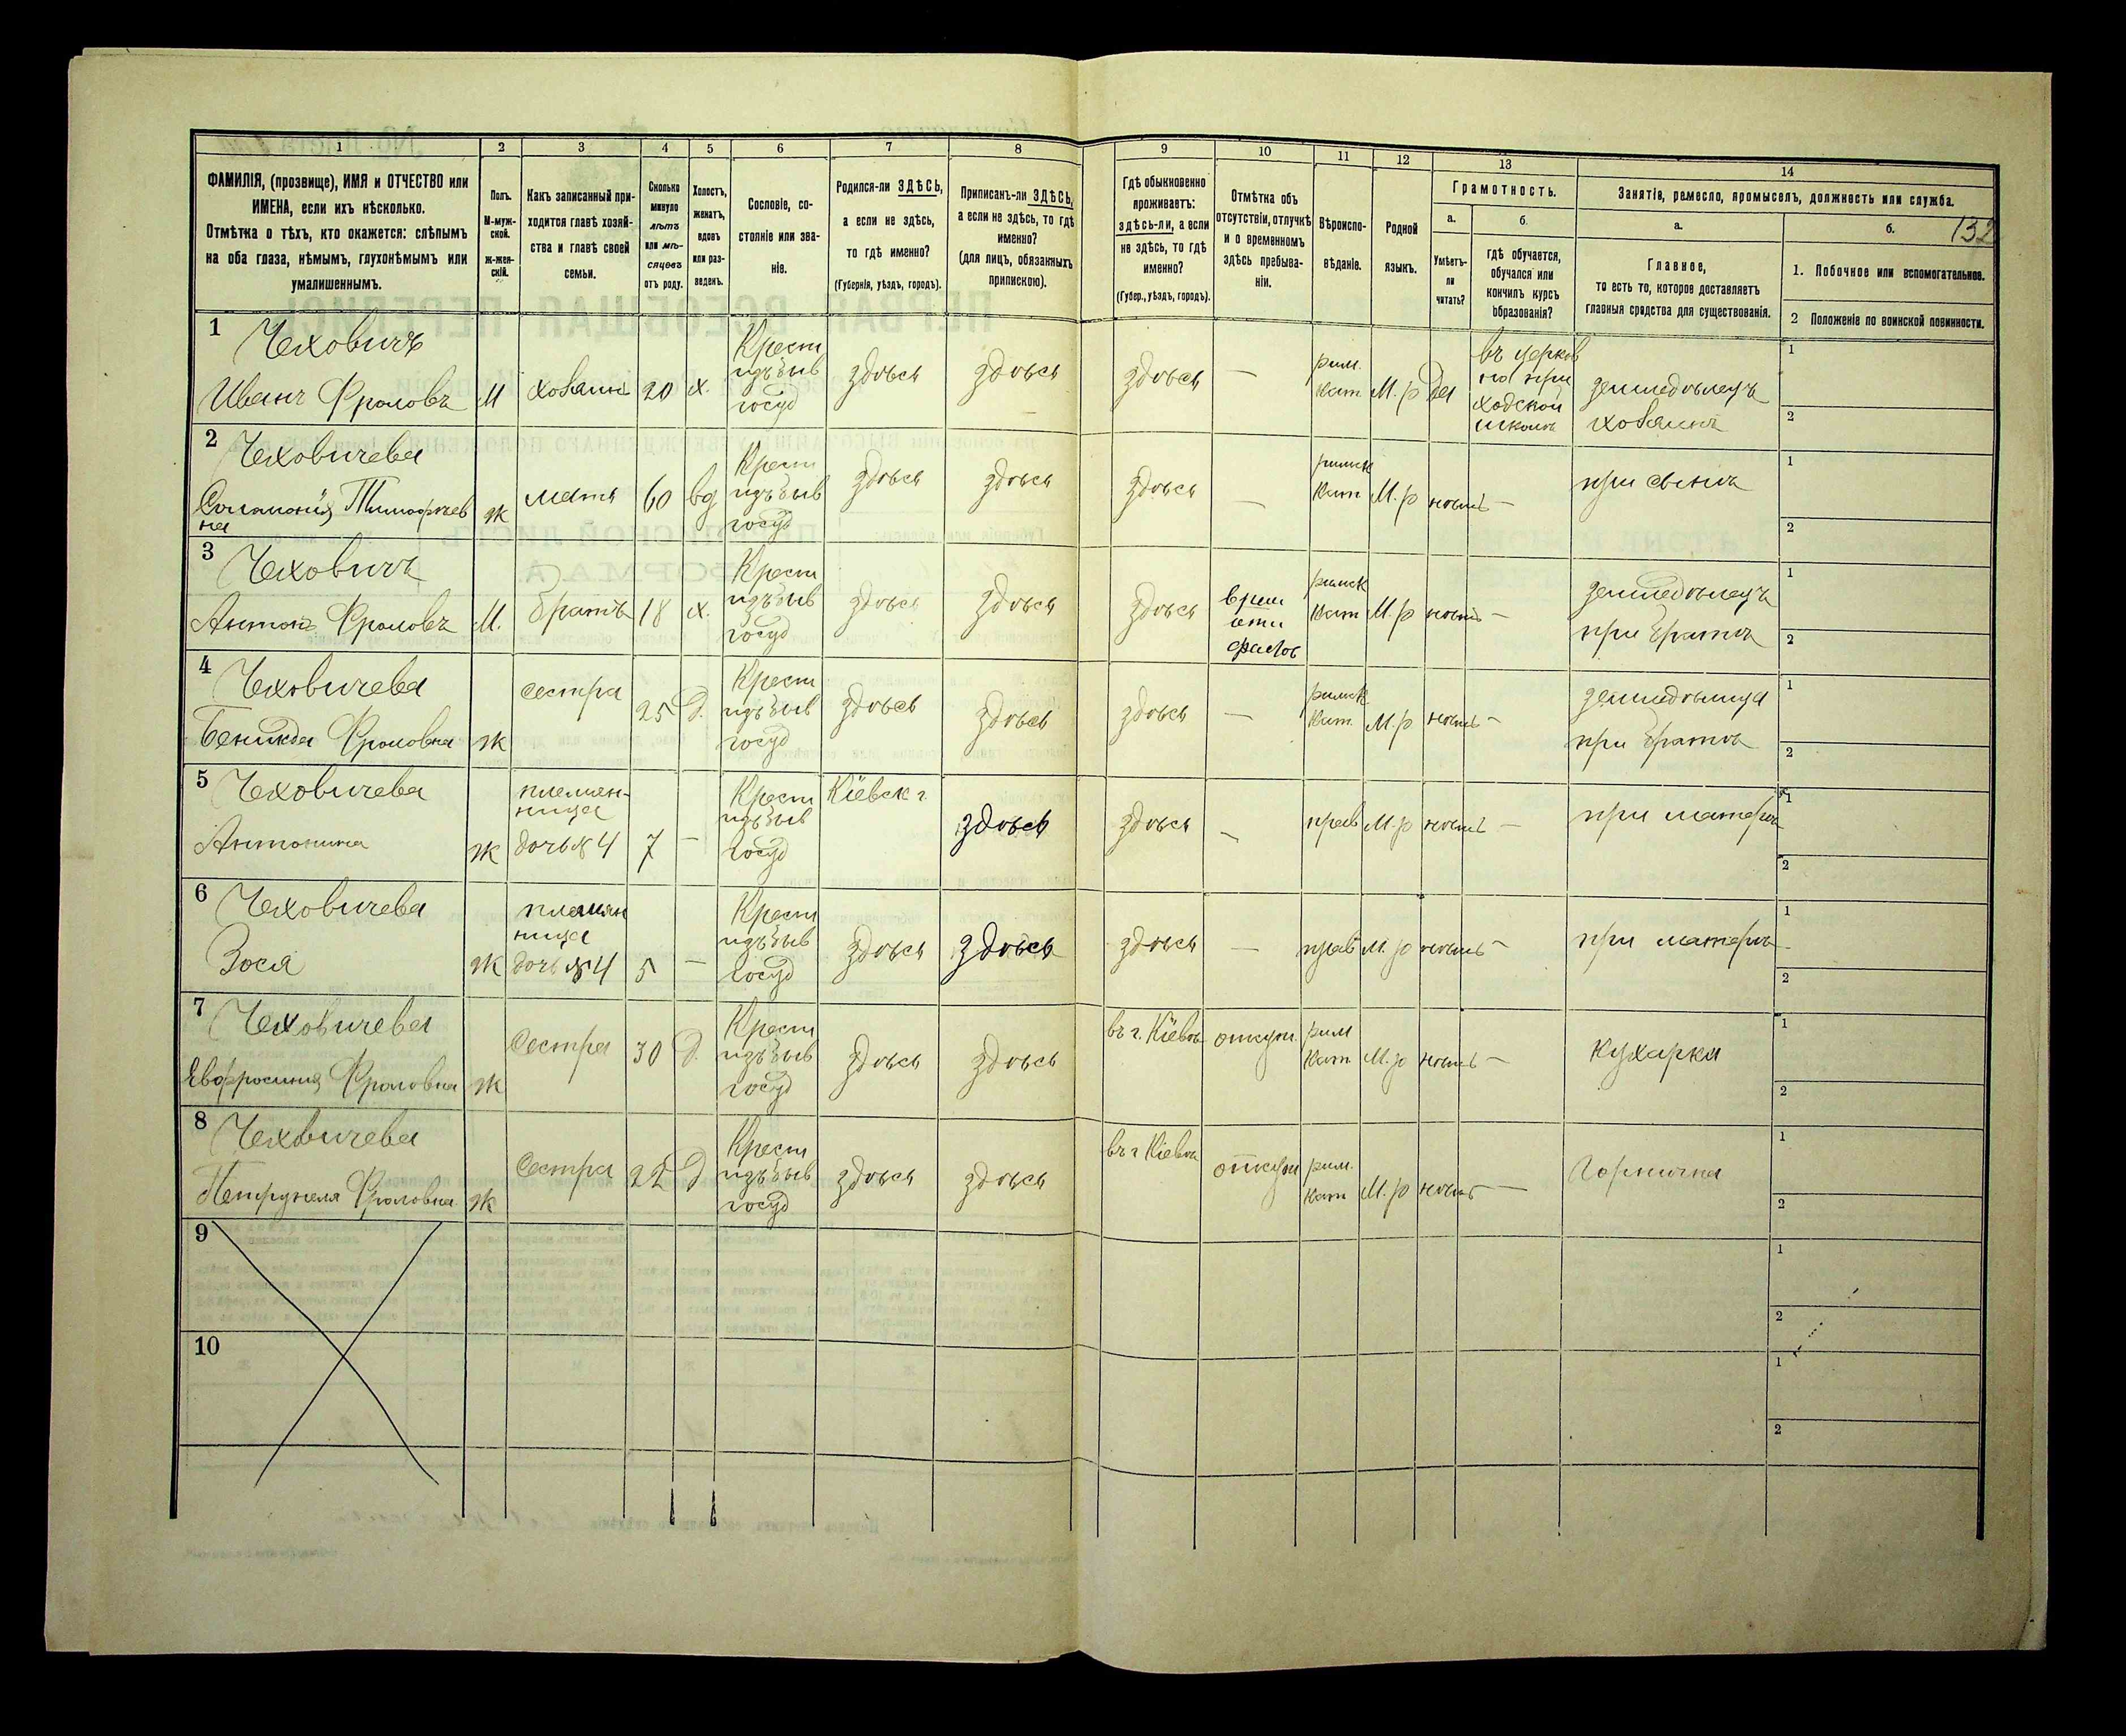 1 2 3 4 5 6 7 8 9 10 11 12 13 14
ФАМИЛІЯ, (прозвище), ИМЯ и ОТЧЕСТВО или
ИМЕНА, если ихъ нѣсколько.
Отмѣтка о тѣхъ, кто окажется: слѣпымъ
на оба глаза, нѣмымъ, глухонѣмымъ или
умалишеннымъ.
Полъ.
М-муж-
ской.
ж-жен-
скій.
Какъ записанный при-
ходится главѣ хозяй-
ства и главѣ своей
семьи.
Сколько
минуло
лѣтъ
или мѣ-
сяцевъ
отъ роду.
Холостъ,
женатъ,
вдовъ
или раз-
веденъ.
Сословіе, со-
стояніе или зва-
ніе.
Родился-ли ЗДѢСЬ,
а если не здѣсь,
то гдѣ именно?
(Губернія, уѣздъ, городъ).
Приписанъ-ли ЗДѢСЬ,
а если не здѣсь, то гдѣ
именно?
(для лицъ, обязанныхъ
припискою).
Гдѣ обыкновенно
проживаетъ:
здѣсь-ли, а если
не здѣсь, то гдѣ
именно?
(Губер., уѣздъ, городъ).
Отмѣтка объ
отсутствіи, отлучкѣ
и о временномъ
здѣсь пребыва-
ніи.
Вѣроиспо-
вѣданіе.
Родной
языкъ.
Грамотность.
а.
Умѣетъ-
ли
читать?
б.
гдѣ обучается,
обучался или
кончилъ курсъ
образованія?
Занятіе, ремесло, промыселъ, должность или служба.
а.
Главное,
то есть то, которое доставляетъ
главныя средства для существованія.
б. 132
1. Побочное или вспомогательное.
2 Положеніе по воинской повинности.
1 Чеховичъ
Иванъ Фроловъ М хозяинъ 20 х.
Крест
изъ быв
госуд
здѣсь здѣсь здѣсь —
рим.
кат М.р да
въ церков
но при
ходской
школѣ
земледѣлецъ
хозяинъ
1
2
2 Чеховичева
Соломонія Тимофѣев
на ж мать 60 вд
Крест
изъ быв
госуд
здѣсь здѣсь здѣсь —
римск
кат М.р нѣтъ —
при сынѣ
1
2
3 Чеховичъ
Антонъ Фроловъ М. братъ 18 х.
Крест
изъ быв
госуд
здѣсь здѣсь здѣсь
римск
кат М.р нѣтъ —
земледѣлецъ
при братѣ
1
2
4 Чеховичева
Фроловна ж сестра 25 д.
Крест
изъ быв
госуд
здѣсь здѣсь здѣсь —
римск
кат. М.р нѣтъ —
при братѣ
1
2
5 Чеховичева
Антонина ж
племян-
ница
дочь № 4 7 —
Крест
изъ быв
госуд
Кіевск г. здѣсь здѣсь —
прав М.р нѣтъ —
при матери
1
2
6 Чеховичева
Зося ж
племян
ница
дочь № 4 5 —
Крест
изъ быв
госуд
здѣсь здѣсь здѣсь —
прав М.р нѣтъ —
при матери
1
2
7 Чеховичева
Евфросинія Фроловна ж Сестра 30 д.
Крест
изъ быв
госуд
здѣсь здѣсь въ г. Кіевѣ отлуч.
рим
кат М.р нѣтъ —
кухарка
1
2
8 Чеховичева
Петрунеля Фроловна ж Сестра 22 д
Крест
изъ быв
госуд
здѣсь здѣсь въ г Кіевѣ отлуч
рим.
кат М.р нѣтъ —
Горнична
1
2
9
1
2
10
1
2